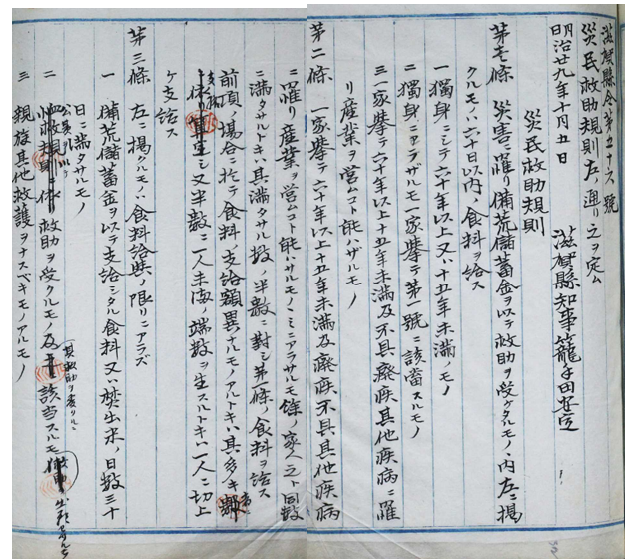 滋賀縣令第五十六號
災民救助規則左ノ通リ之ヲ定ム
明治廿九年十月五日
滋賀縣知事籠手田安定
災民救助規則
第壱條 災害ニ罹リ備荒儲蓄金ヲ以テ救助ヲ受ケタルモノヽ内左ニ掲
クルモノハ六十日以内ノ食料ヲ給ス
一 獨身ニシテ六十年以上又ハ十五年未滿ノモノ
二 獨身ニアラザルモ一家擧テ第一號ニ該當スルモノ
三 一家擧テ六十年以上十五年未滿及不具癈疾其他疾病ニ罹
リ産業ヲ營ムコト能ハザルモノ
第二條 一家擧テ六十年以上十五年未滿及癈疾不具其他疾病
ニ罹リ産業ヲ営ムコト能ハサルモノノミニアラサルモ 餘ノ家人之ト同数
ニ滿タサルトキハ其滿タサル数ノ半数ニ對シ第一條ノ食料ヲ給ス
前項ノ場合ニ於テ食料ノ支給額異ナルモノアルトキハ其多キ
生シ又半数ニ一人未滿ノ端数ヲ生スルトキハ一人ニ切上
ケ支給ス
第三條 左ニ掲クルモノハ食料給與ノ限リニアラズ
一 備荒儲蓄金ヲ以テ支給シタル食料又ハ焚出米ノ日数三十
日ニ滿タサルモノ
二 救助ヲ受クルモノ及 該当スルモ
三 親族其他救護ヲナスベキモノアルモノ